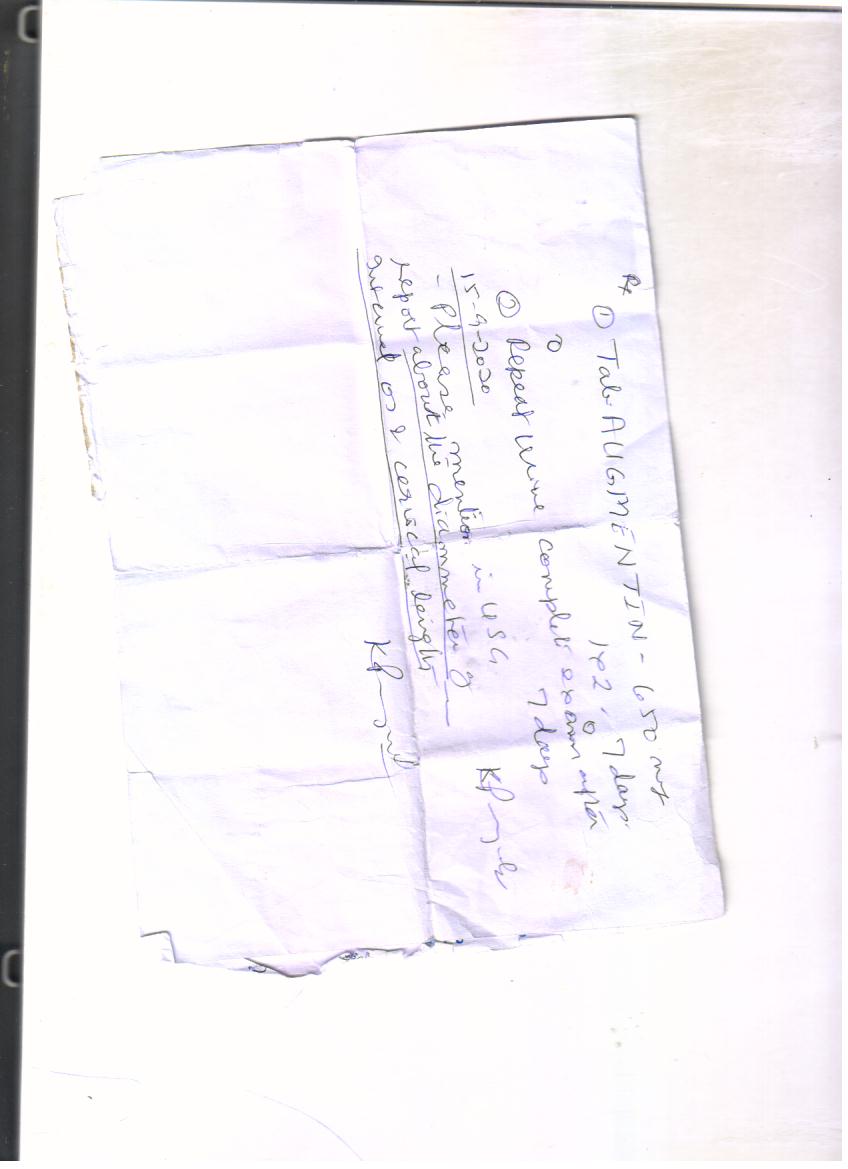 Rx
① Tab- AUGMENTIN - 650 mg
1x2 · 7 days
② Repeat urine complete exam after
7 days
15-9-2020
- Please mention in USG
report about the diammeter of
internal os & cervical length